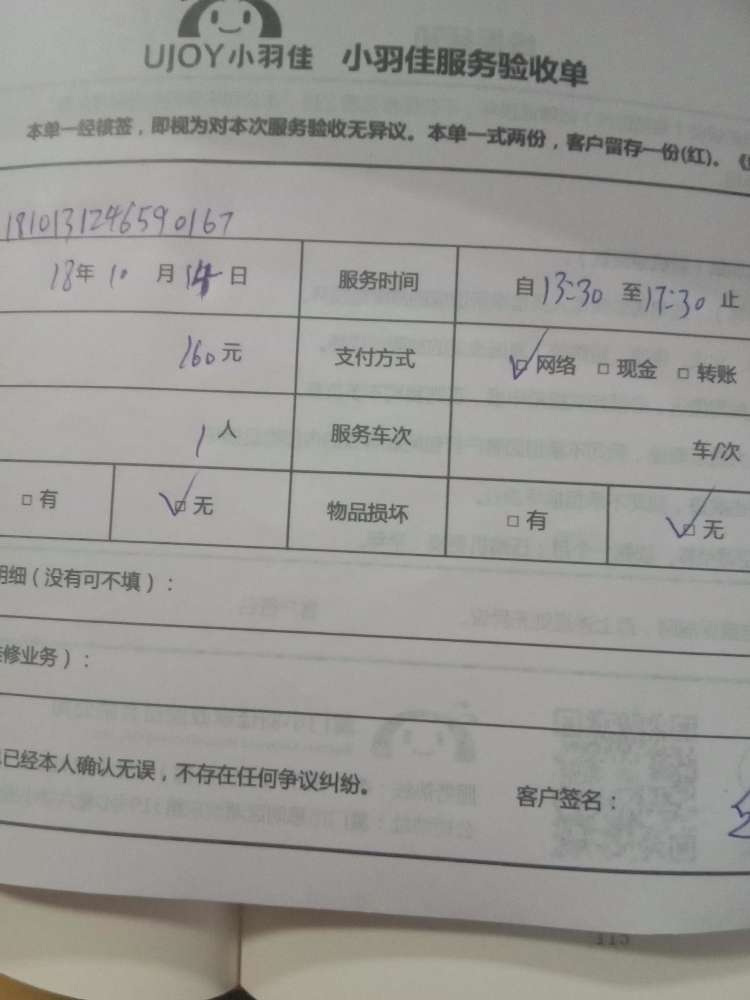 UJOY小羽佳 小羽佳服务验收单
本单一经核签，即视为对本次服务验收无异议。本单一式两份，客户留存一份(红)。
1810131246590167
18年10月14日 服务时间 自13:30至17:30止
160元 支付方式 ☑网络 □现金 □转账
1人 服务车次 车/次
□有 ☑无 物品损坏 □有 ☑无
明细（没有可不填）：
修业务）：
已经本人确认无误，不存在任何争议纠纷。 客户签名：